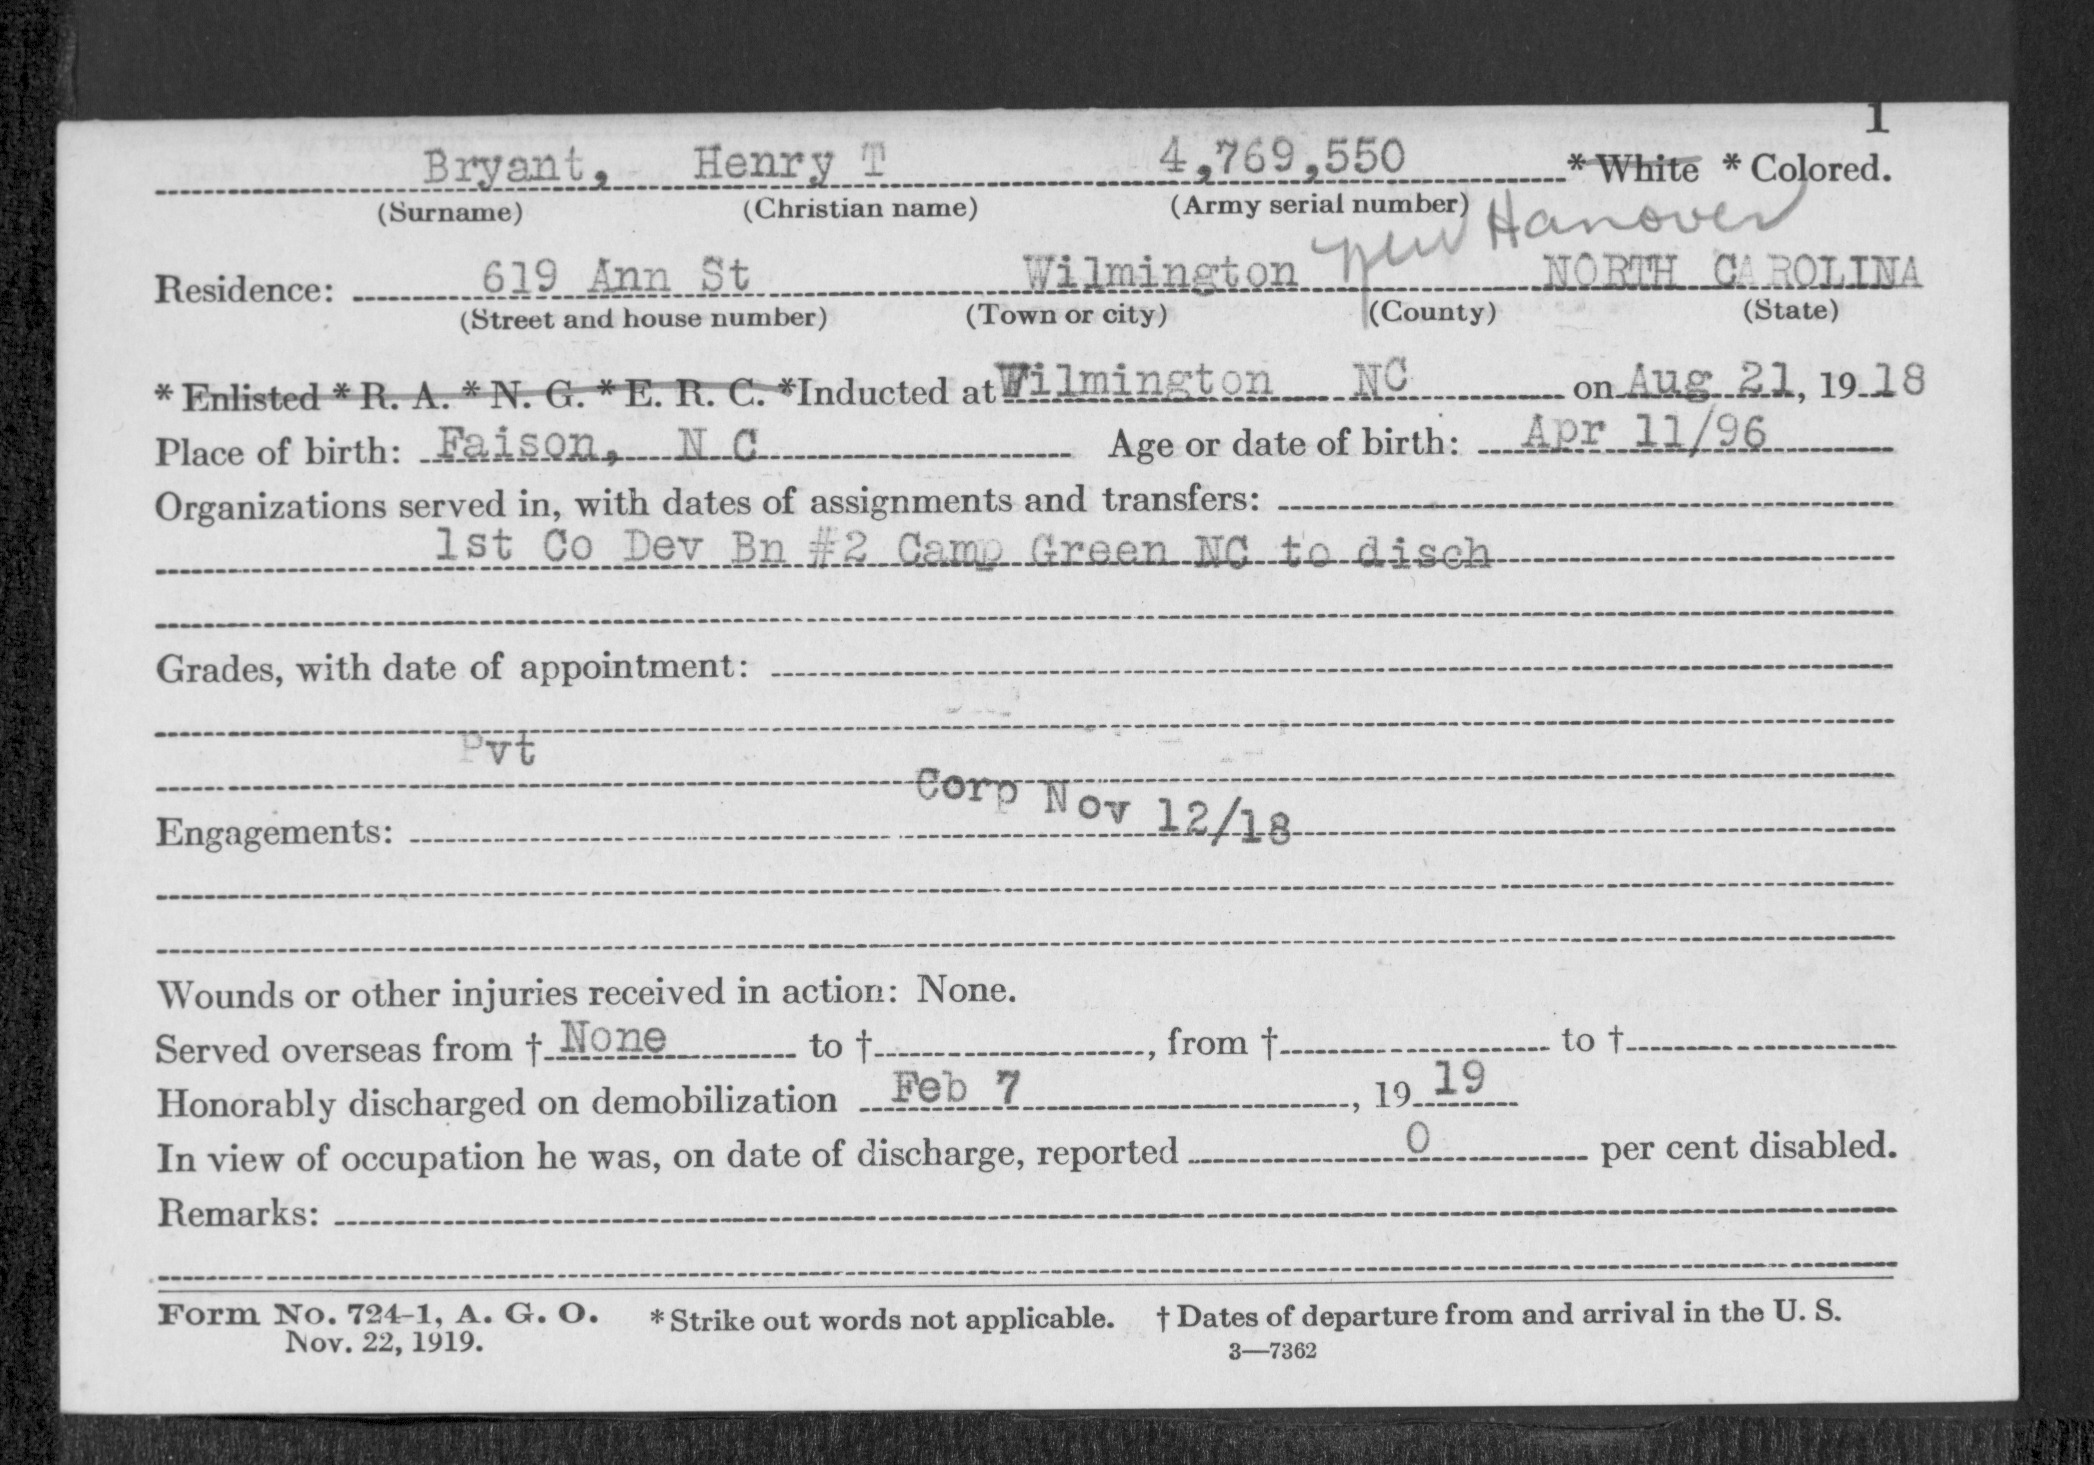 1
Bryant, Henry T 4,769,550 * White * Colored.
(Surname) (Christian name) (Army serial number)
New Hanover
Residence: 619 Ann St Wilmington NORTH CAROLINA
(Street and house number) (Town or city) (County) (State)
* Enlisted * R. A. * N. G. * E. R. C. * Inducted at Wilmington NC on Aug 21, 1918
Place of birth: Faison, N C Age or date of birth: Apr 11/96
Organizations served in, with dates of assignments and transfers:
1st Co Dev Bn #2 Camp Green NC to disch
Grades, with date of appointment:
Pvt
Corp Nov 12/18
Engagements:
Wounds or other injuries received in action: None.
Served overseas from † None to †, from † to †
Honorably discharged on demobilization Feb 7, 1919
In view of occupation he was, on date of discharge, reported 0 per cent disabled.
Remarks:
Form No. 724-1, A. G. O. * Strike out words not applicable. † Dates of departure from and arrival in the U. S.
Nov. 22, 1919. 3—7362